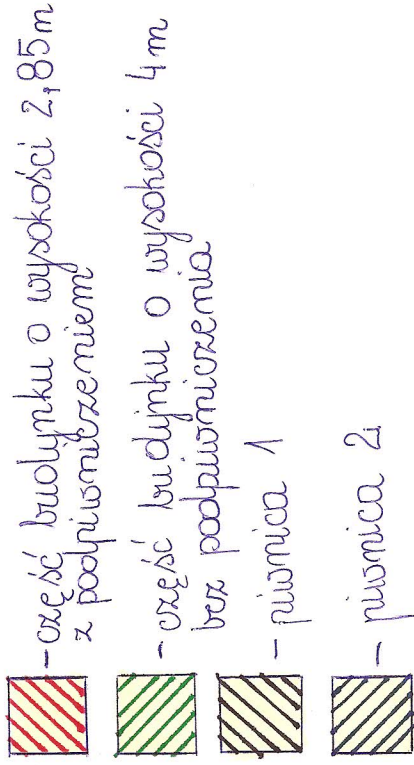 - część budynku o wysokości 2,85m
z podpiwniczeniem
- część budynku o wysokości 4m
bez podpiwniczenia
- piwnica 1
- piwnica 2